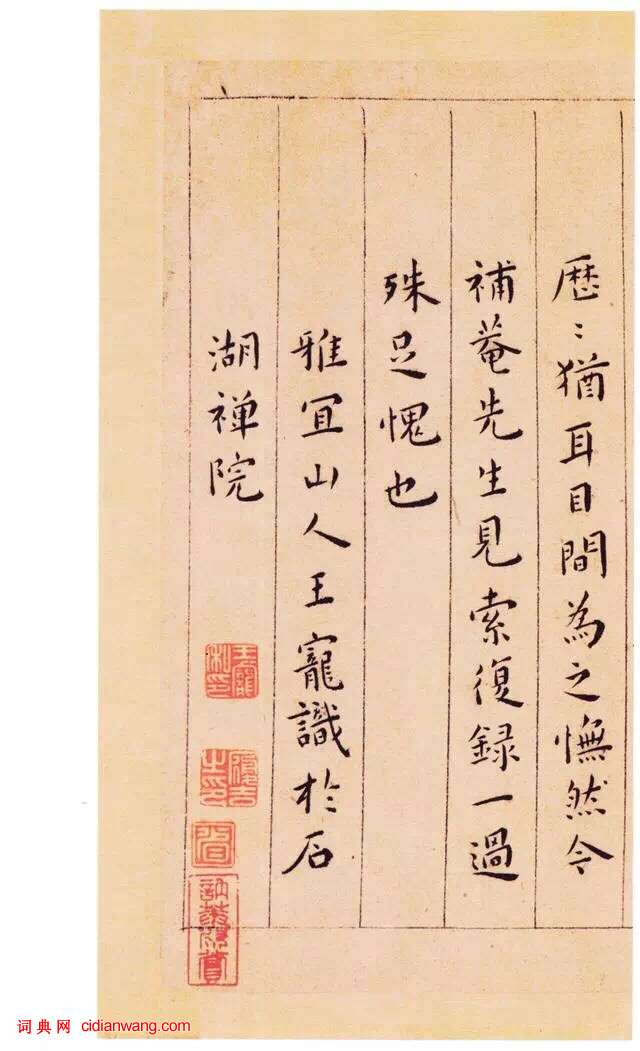 歷〻猶耳目間為之憮然今
補菴先生見索復錄一過
殊足愧也
雅宜山人王寵識於石
湖禪院
王寵私印
履吉之印
词典网 cidianwang.com